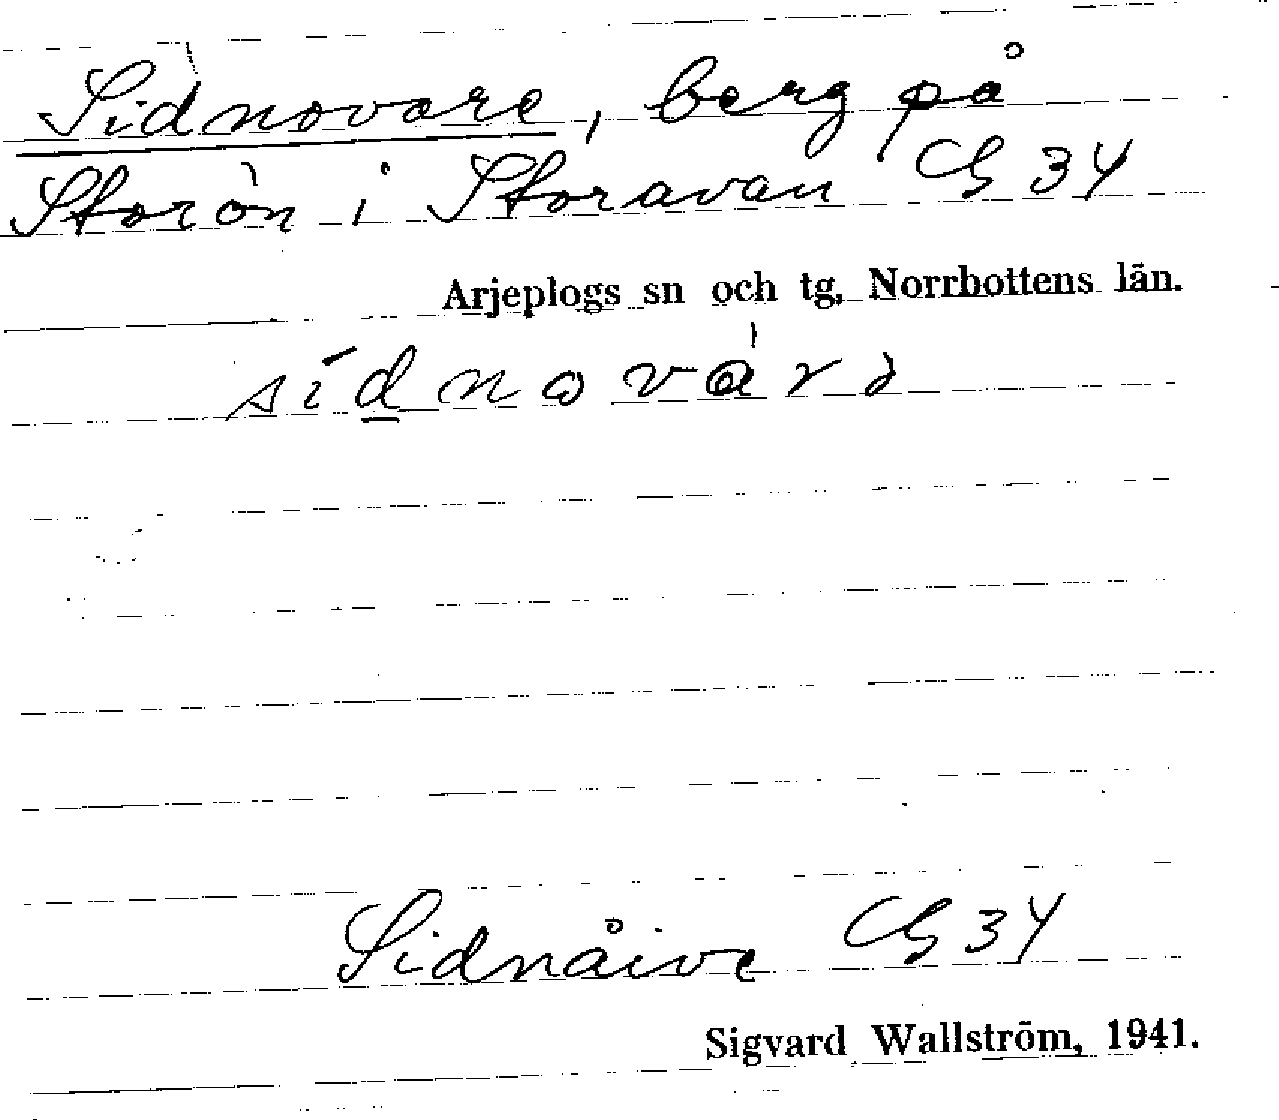 Sidnovare, berg på
Storön i Storavan G 34
Arjeplogs sn och tg, Norrbottens län.
Sidnåive G 34
Sigvard Wallström, 1941.